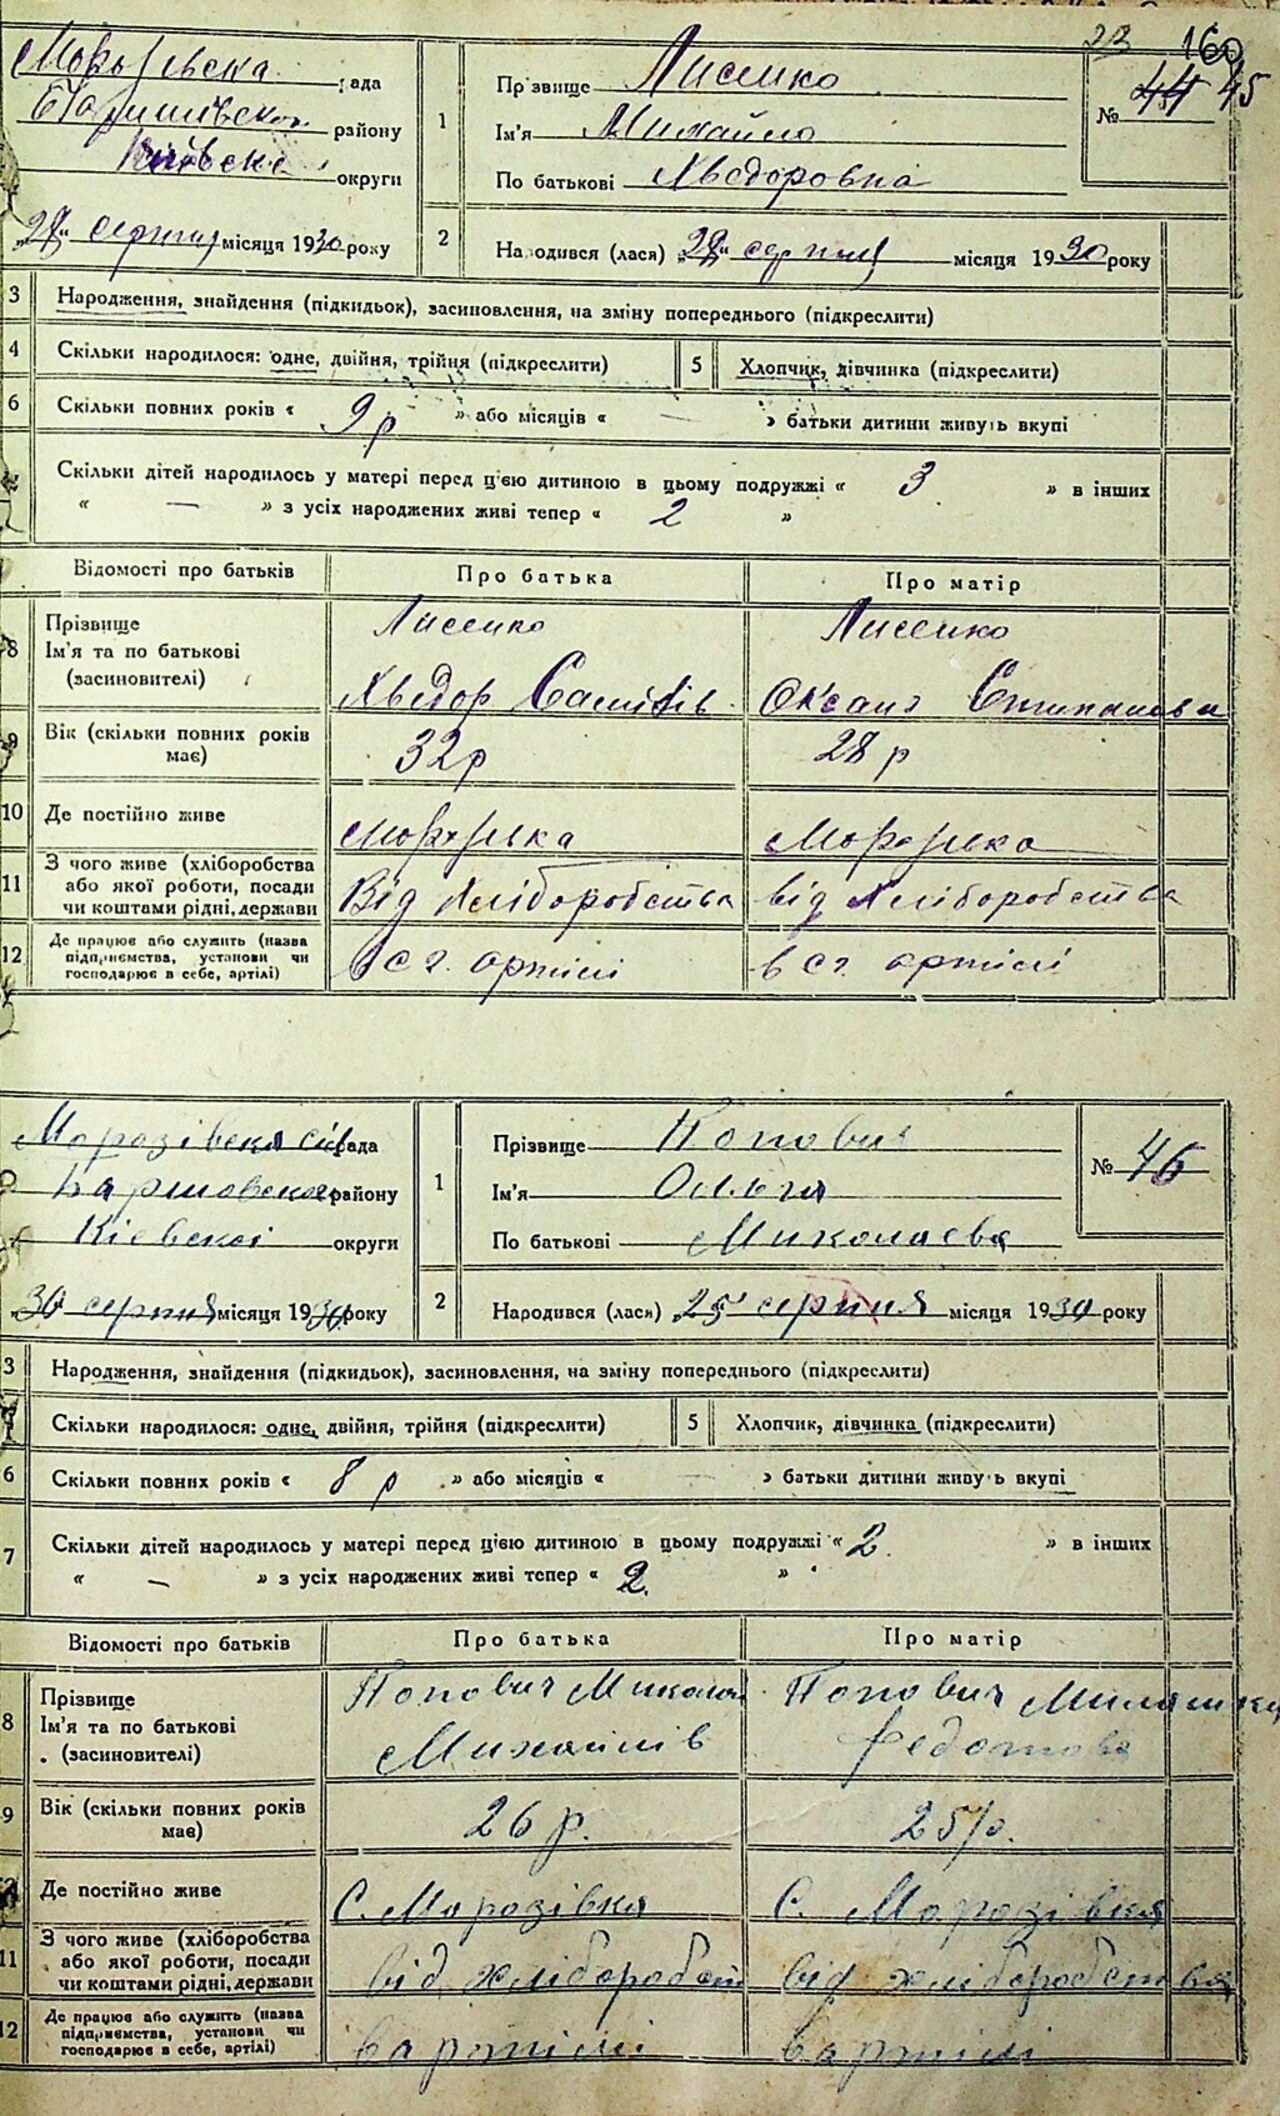 23 160
Морозівска рада
Баришівско району
Київскі округи
1 Прізвище Лисенко
Ім'я Михайло
По батькові Хведоровна
№ 44 45
„28“ серпня місяця 1930 року
2 Народився (лася) „28“ серпня місяця 1930 року
3 Народження, знайдення (підкидьок), засиновлення, на зміну попереднього (підкреслити)
4 Скільки народилося: одне, двійня, трійня (підкреслити) 5 Хлопчик, дівчинка (підкреслити)
6 Скільки повних років « 9 р » або місяців « — » батьки дитини живуть вкупі
Скільки дітей народилось у матері перед цією дитиною в цьому подружжі « 3 » в інших
« — » з усіх народжених живі тепер « 2 »
Відомості про батьків Про батька Про матір
8 Прізвище Лисенко Лисенко
Ім'я та по батькові
(засиновителі) Хведор Оксана Степанова
9 Вік (скільки повних років має) 32 р 28 р
10 Де постійно живе Морозівка Морозівка
11 З чого живе (хліборобства
або якої роботи, посади
чи коштами рідні, держави Від хліборобства від хліборобства
12 Де працює або служить (назва
підприємства, установи чи
господарює в себе, артілі) в с г. артілі в с г. артілі
Морозівска сіл рада
Баришовскоя району
Кіевскої округи
1 Прізвище Попович
Ім'я Ольга
По батькові Миколаєва
№ 46
„30 серпня місяця 1930 року
2 Народився (лася) „25“ серпня місяця 1930 року
3 Народження, знайдення (підкидьок), засиновлення, на зміну попереднього (підкреслити)
Скільки народилося: одне, двійня, трійня (підкреслити) 5 Хлопчик, дівчинка (підкреслити)
6 Скільки повних років « 8 р » або місяців « — » батьки дитини живуть вкупі
7 Скільки дітей народилось у матері перед цією дитиною в цьому подружжі « 2 » в інших
« — » з усіх народжених живі тепер « 2. »
Відомості про батьків Про батька Про матір
8 Прізвище Попович Микола Попович
Ім'я та по батькові
(засиновителі) Михайлів Федотова
9 Вік (скільки повних років має) 26 р. 25 р.
Де постійно живе С. Морозівка С. Морозівка
11 З чого живе (хліборобства
або якої роботи, посади
чи коштами рідні, держави від хліборобст від хліборобства
12 Де працює або служить (назва
підприємства, установи чи
господарює в себе, артілі) в артілі в артілі